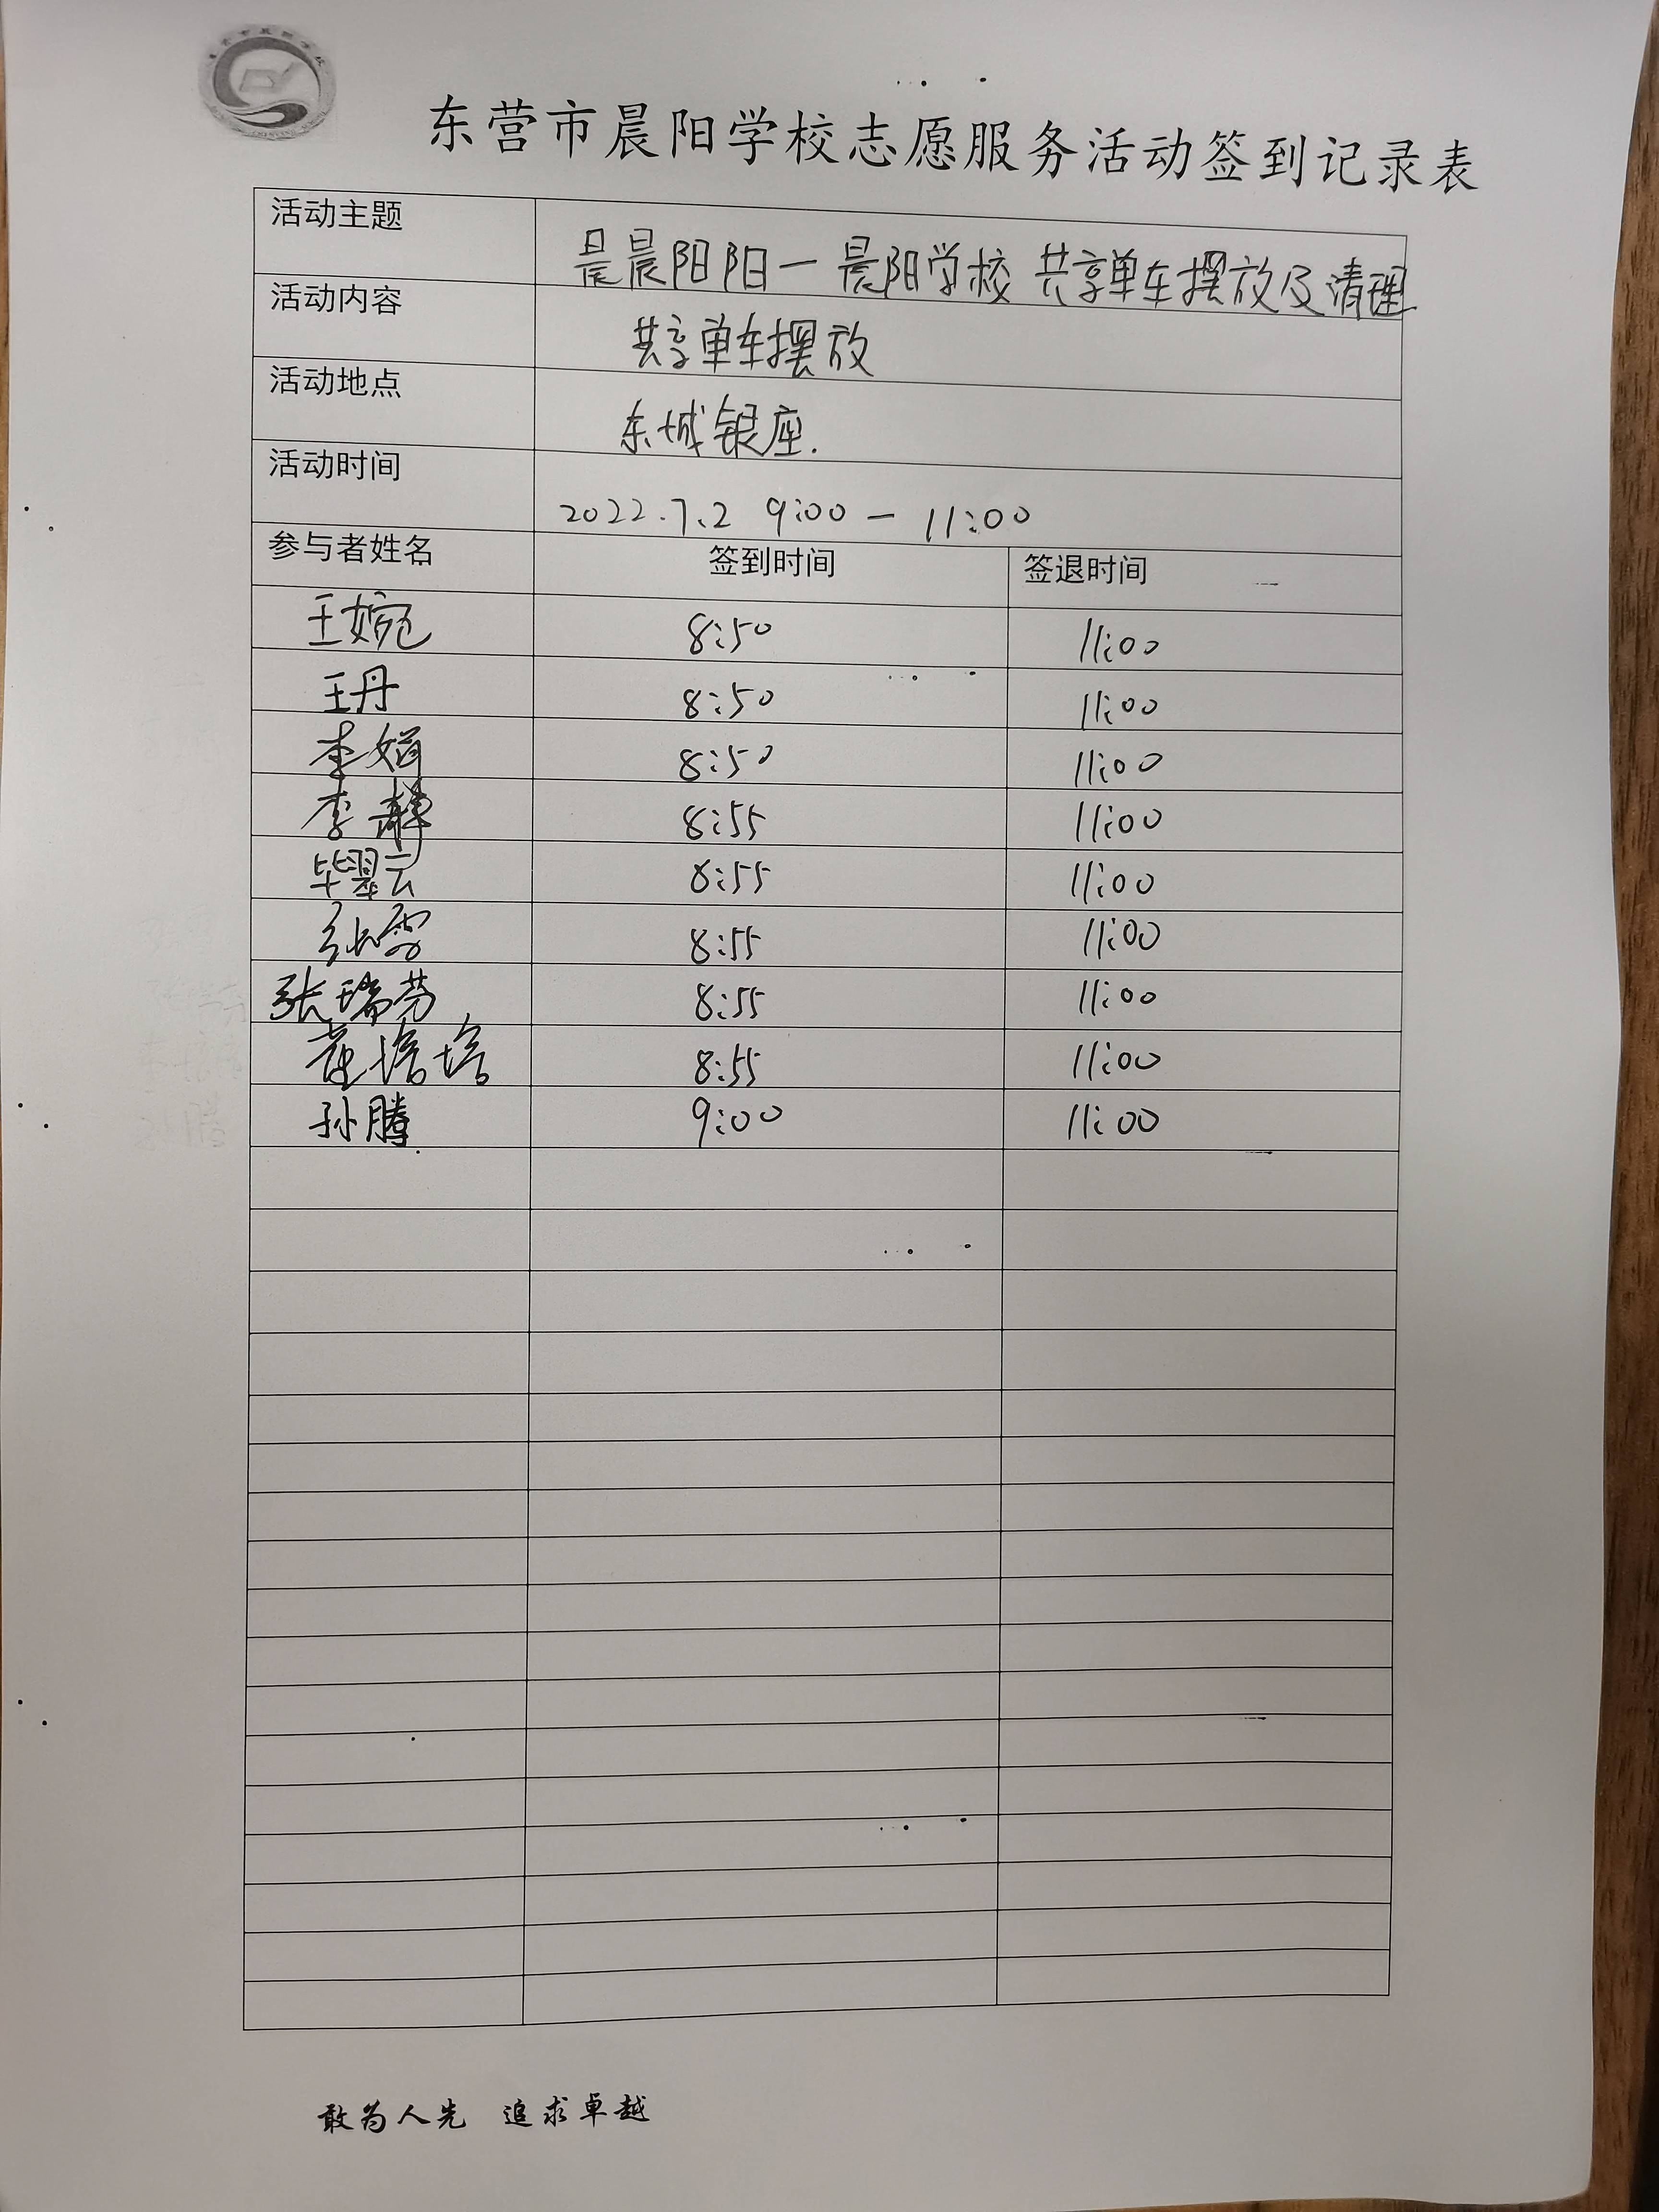 东营市晨阳学校志愿服务活动签到记录表
活动主题 晨晨阳阳一晨阳学校 共享单车摆放及清理
活动内容 共享单车摆放
活动地点 东城银座.
活动时间 2022.7.2 9:00 — 11:00
参与者姓名 签到时间 签退时间
王婉 8:50 11:00
王丹 8:50 11:00
李娟 8:50 11:00
李静 8:55 11:00
毕翠云 8:55 11:00
张雪 8:55 11:00
张瑞芬 8:55 11:00
培培 8:55 11:00
孙腾 9:00 11:00
敢为人先 追求卓越